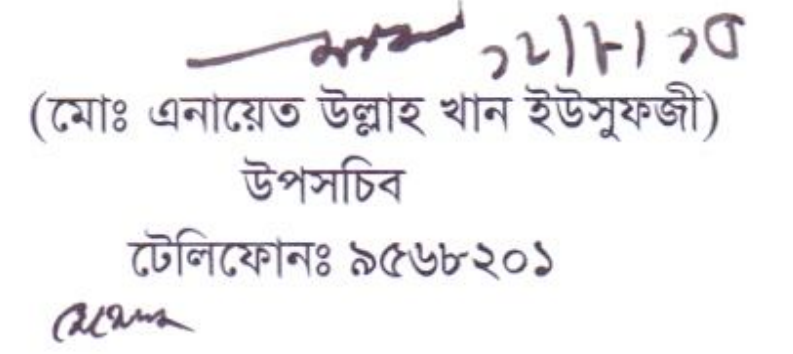 ১২/৮/১৫
(মোঃ এনায়েত উল্লাহ খান ইউসুফজী)
উপসচিব
টেলিফোনঃ ৯৫৬৮২০১